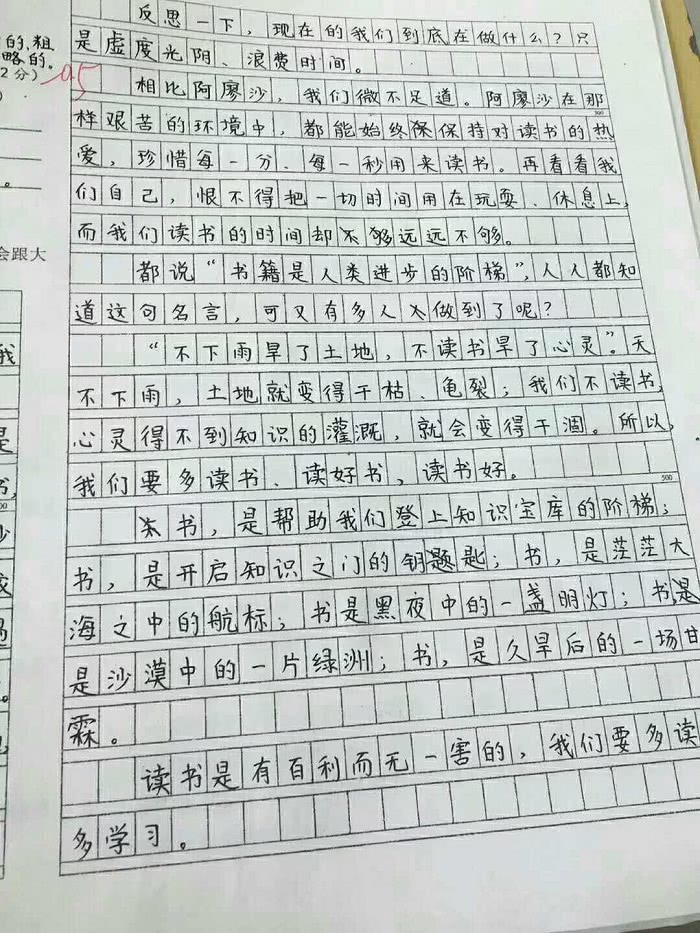 的,粗
略的。
2分)
0.5
)
。
会跟大
我
是
书,
反思一下,现在的我们到底在做什么?只
是虚度光阴、浪费时间。
相比阿廖沙,我们微不足道。阿廖沙在那
300
样艰苦的环境中,都能始终保持对读书的热
爱,珍惜每一分、每一秒用来读书。再看看我
们自己,恨不得把一切时间用在玩耍、休息上,
而我们读书的时间却远远不够。
都说“书籍是人类进步的阶梯”,人人都知
道这句名言,可又有多人做到了呢?
“不下雨旱了土地,不读书旱了心灵”。天
不下雨,土地就变得干枯、龟裂;我们不读书,
心灵得不到知识的灌溉,就会变得干涸。所以,
我们要多读书、读好书,读书好。
500
书,是帮助我们登上知识宝库的阶梯;
书,是开启知识之门的钥匙;书,是茫茫大
海之中的航标;书是黑夜中的一盏明灯;书
是沙漠中的一片绿洲;书,是久旱后的一场甘
霖。
读书是有百利而无一害的,我们要多读
多学习。